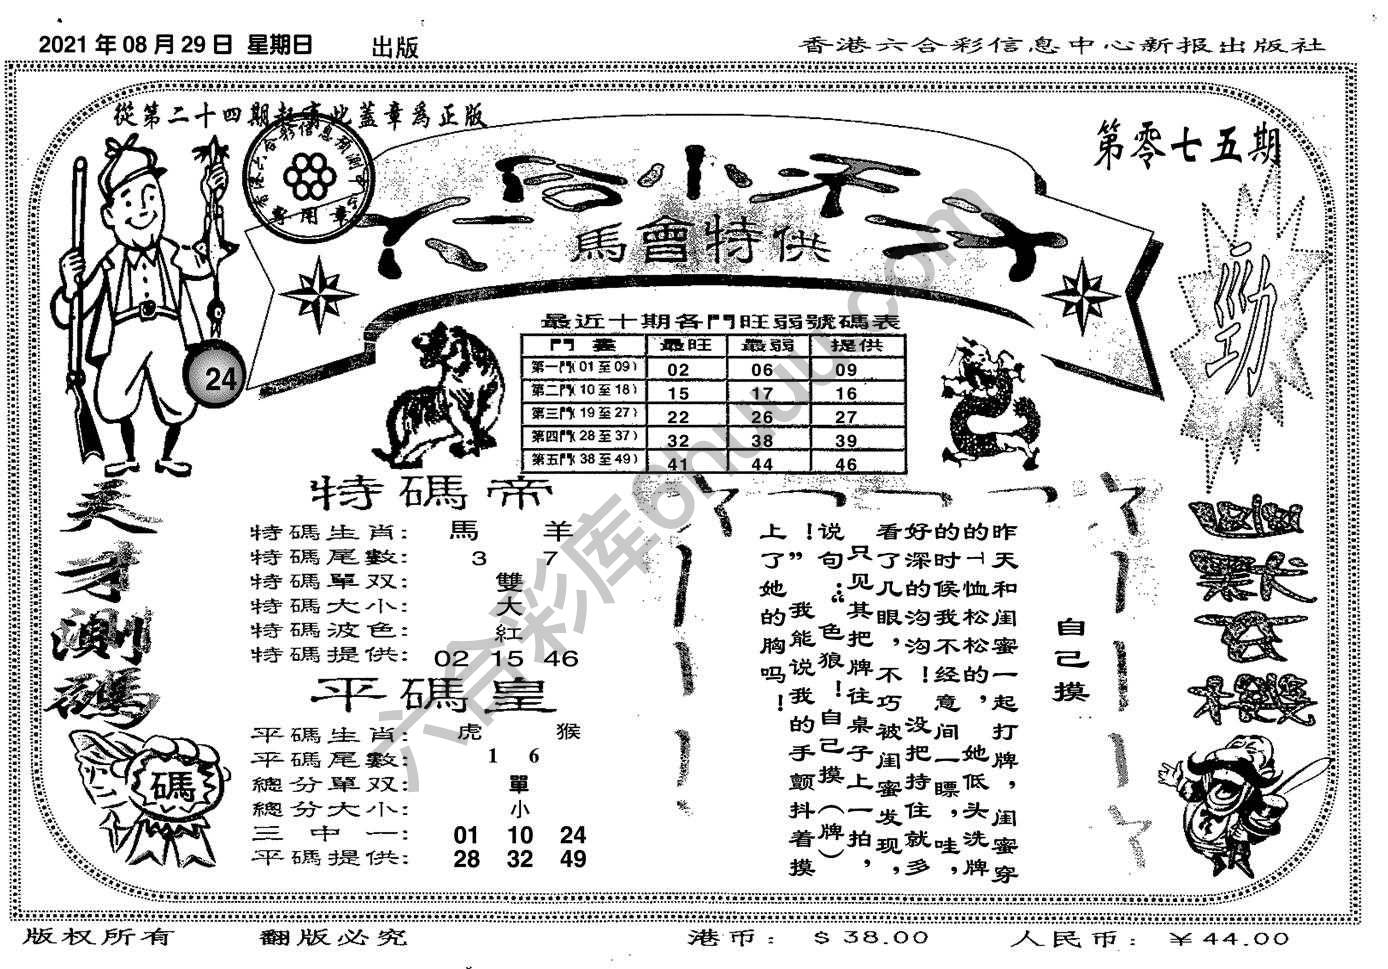 2021年08月29日 星期日 出版
香港六合彩信息中心新报出版社
從第二十四期起客此蓋章爲正版
香港六合彩信息预测中心
專用章
第零七五期
六合小天才
馬會特供
勁
24
最近十期各門旺弱號碼表
門 最旺 最弱 提供
第一門(01至09) 02 06 09
第二門(10至18) 15 17 16
第三門(19至27) 22 26 27
第四門(28至37) 32 38 39
第五門(38至49) 41 44 46
天才測碼
碼
特碼帝
特碼生肖: 馬 羊
特碼尾數: 3 7
特碼單双: 雙
特碼大小: 大
特碼波色: 紅
特碼提供: 02 15 46
平碼皇
平碼生肖: 虎 猴
平碼尾數: 1 6
總分單双: 單
總分大小: 小
三中一: 01 10 24
平碼提供: 28 32 49
自己摸
昨天和闺蜜一起打牌，闺蜜穿
的一恤松松的，她低头洗牌
的时候我不经意间一瞟，哇，
好深的沟沟！没把持住就多
看了几眼，不巧被闺蜜发现，
只见其把牌往桌子上一拍，
说句：“色狼！自己摸（牌）
！”我能说我的手颤抖着摸
上了她的胸吗！
六合彩库6huu.com
版权所有 翻版必究
港币：$38.00 人民币：￥44.00